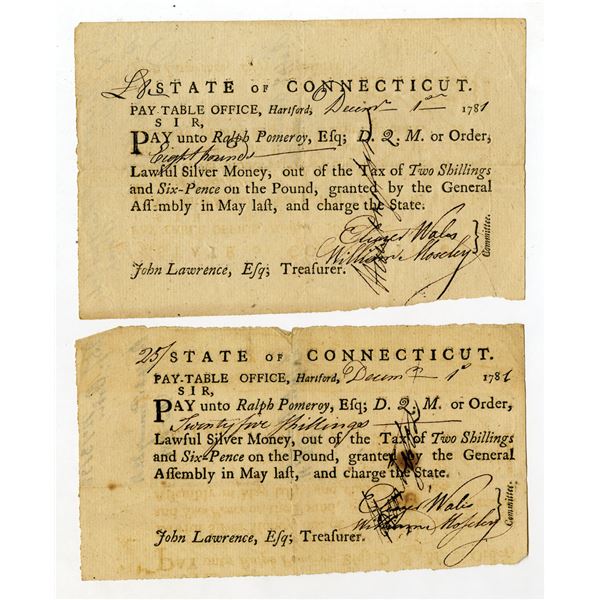 £8 STATE OF CONNECTICUT.
PAY-TABLE OFFICE, Hartford, Decemr 1st 1781
SIR,
PAY unto Ralph Pomeroy, Esq; D. Q. M. or Order,
Eight pounds
Lawful Silver Money, out of the Tax of Two Shillings
and Six-Pence on the Pound, granted by the General
Assembly in May last, and charge the State.
Eleazer Wales
William Moseley
Committee.
John Lawrence, Esq; Treasurer.
25/ STATE OF CONNECTICUT.
PAY-TABLE OFFICE, Hartford, Decemr 1st 1781
SIR,
PAY unto Ralph Pomeroy, Esq; D. Q. M. or Order,
Twenty five Shillings
Lawful Silver Money, out of the Tax of Two Shillings
and Six-Pence on the Pound, granted by the General
Assembly in May last, and charge the State.
Eleazer Wales
William Moseley
Committee.
John Lawrence, Esq; Treasurer.